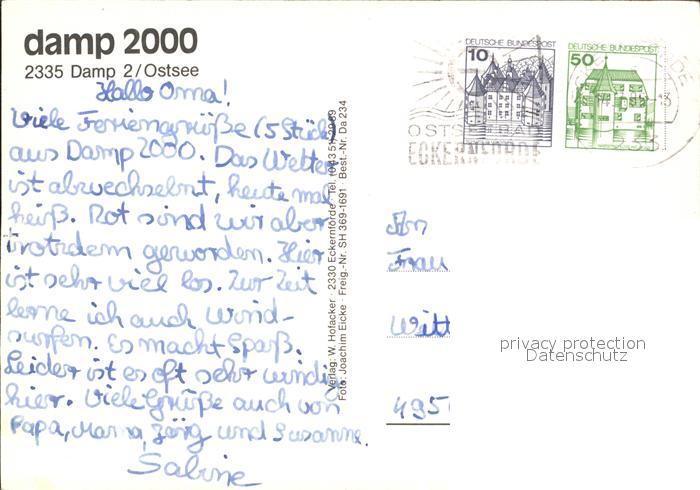 damp 2000
2335 Damp 2/Ostsee
Hallo Oma!
Viele Feriengrüße (5 Stück)
aus Damp 2000. Das Wetter
ist abwechselnt, heute mal
heiß. Rot sind wir aber
trotzdem geworden. Hier
ist sehr viel los. Zur Zeit
lerne ich auch Wind-
surfen. Es macht Spaß.
Leider ist es oft sehr windig
hier. Viele Grüße auch von
Papa, Mama, Jörg und Susanne.
Sabine
Verlag: W. Hofacker · 2330 Eckernförde · Tel. (04351)
Foto: Joachim Eicke · Freig.-Nr. SH 369-1691 · Best.-Nr. Da 234
DEUTSCHE BUNDESPOST
10
DEUTSCHE BUNDESPOST
50
OSTSEEBAD
ECKERNFÖRDE
233
An
Frau
Witt
495
privacy protection
Datenschutz